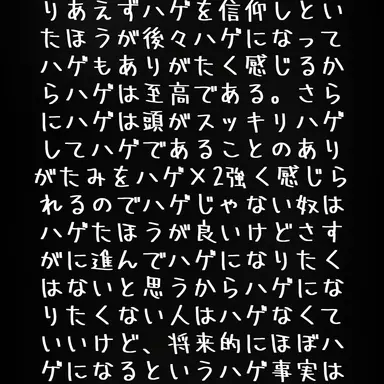 りあえずハゲを信仰しとい
たほうが後々ハゲになって
ハゲもありがたく感じるか
らハゲは至高である。さら
にハゲは頭がスッキリハゲ
してハゲであることのあり
がたみをハゲ×2強く感じら
れるのでハゲじゃない奴は
ハゲたほうが良いけどさす
がに進んでハゲになりたく
はないと思うからハゲにな
りたくない人はハゲなくて
いいけど、将来的にほぼハ
ゲになるというハゲ事実は